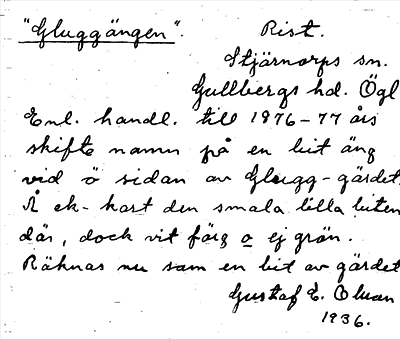 "Gluggängen".
Rist.
Stjärnorps sn.
Gullbergs hd. Ögl
Enl. handl. till 1876-77 års
skifte namn på en bit äng
vid ö sidan av Glugg-gärdet.
Å ek-kart den smala lilla biten
där, dock vit färg o ej grön.
Räknas nu som en bit av gärdet
Gustaf E. Olman
1936.